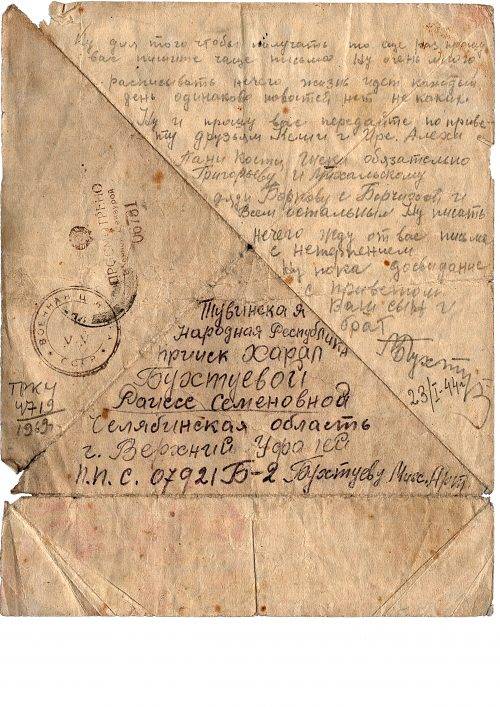 Ну для того чтобы получать то еще раз прошу
вас пишите чаще письма Ну очень много
расписывать нечего жизнь идет каждый
день одинаково новостей нет не каких
Ну и прошу вас передайте по приве-
ту друзьям г Алехи
Пани Кости обязательно
Григорьеву и Михальскому
дяди с и
Всем остальным Ну писать
нечего жду от вас письма
с нетерпением
Ну пока досвидание
с приветом
Ваш сын и
брат
Бухту
23/I-44г
ПРОСМОТРЕНО
06781
ВОЕННАЯ ЦЕНЗУРА
СССР
Тувинская
Народная Республика
прииск Харал
Бухтуевой
Раиссе Семеновной
Челябинская область
г. Верхний Уфалей
П.П.С. 07921Б-2 Бухтуеву Мих.
4719